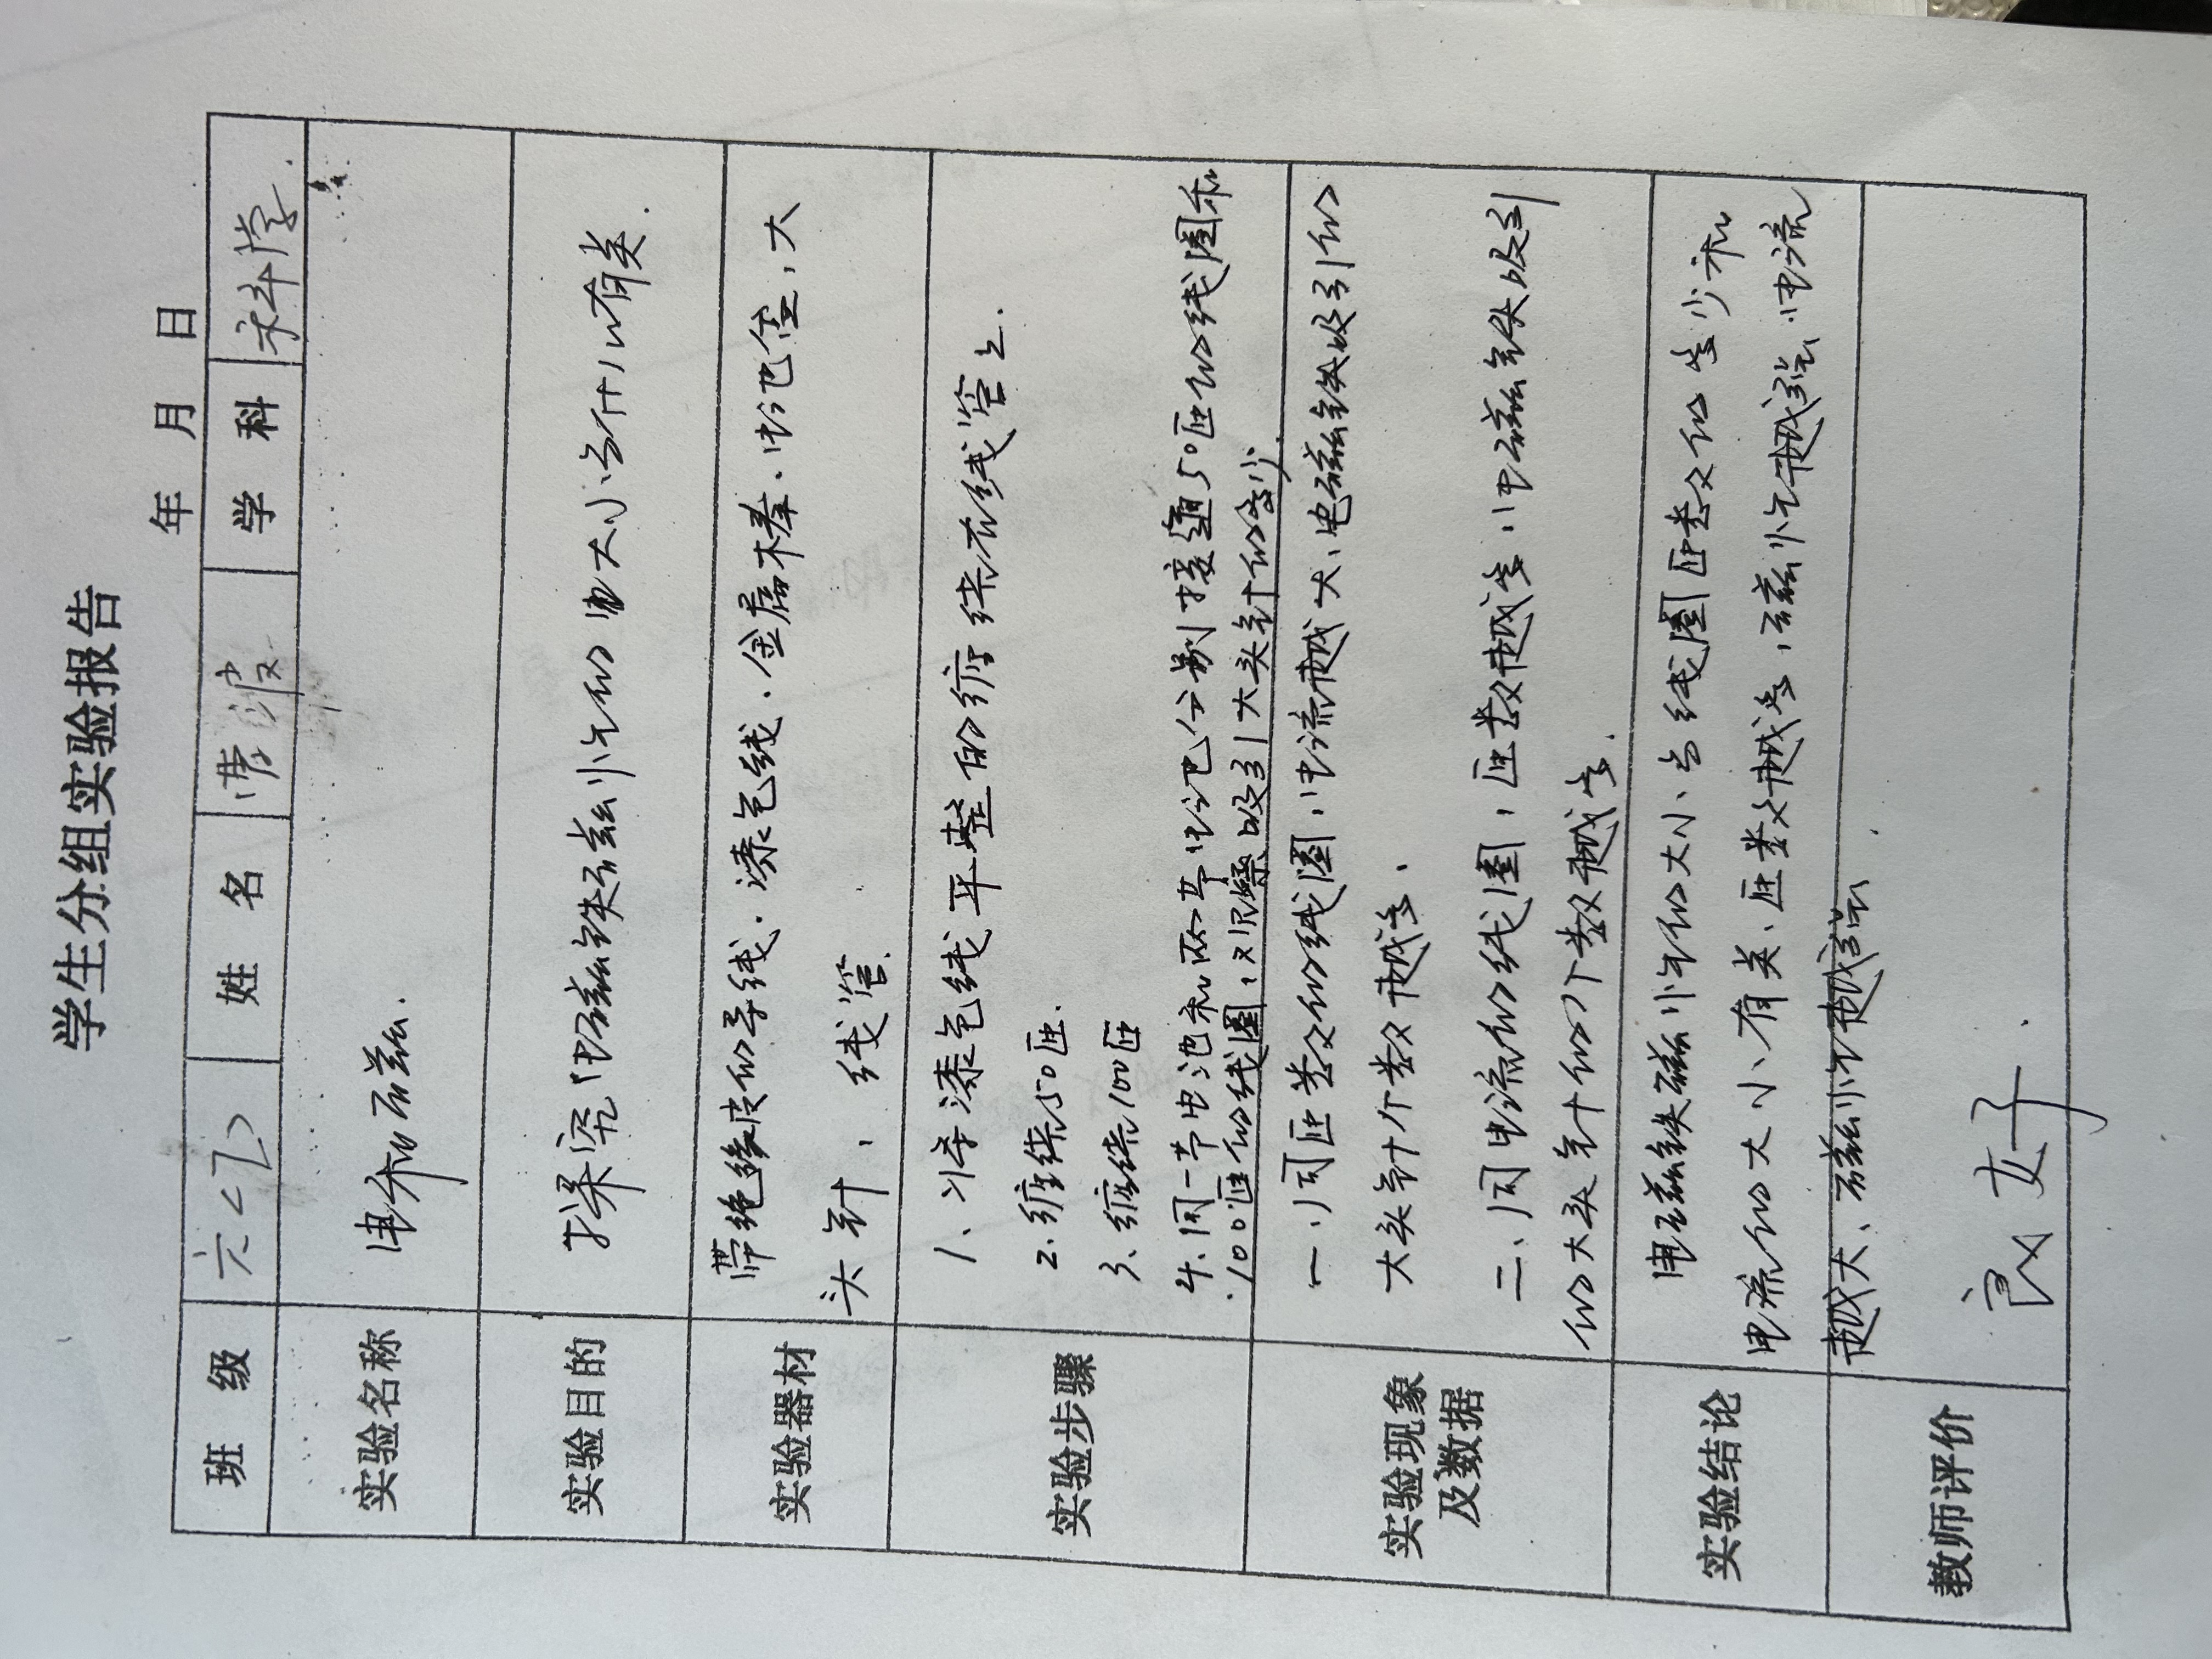 学生分组实验报告
年 月 日
班 级 六<乙> 姓 名 曹波 学 科 科学
实验名称 电和磁.
实验目的 探究电磁铁磁性的大小与什么有关.
实验器材 带绝缘皮的导线.漆包线.金属棒.电池盒,大
头针,线管.
实验步骤 1、将漆包线平整的缠绕在线管上.
2.缠绕50匝.
3、缠绕100匝
4.用一节电池和两节电池分别接通50匝的线圈和
100匝的线圈,观察吸引大头针的多少.
实验现象
及数据
一、同匝数的线圈,电流越大、电磁铁吸引的
大头针个数越多.
二、同电流的线圈,匝数越多,电磁铁吸引
的大头针的个数越多.
实验结论 电磁铁磁性的大小与线圈匝数的多少和
电流的大小有关、匝数越多,磁性越强,电流
越大、磁性越强.
教师评价 良好.